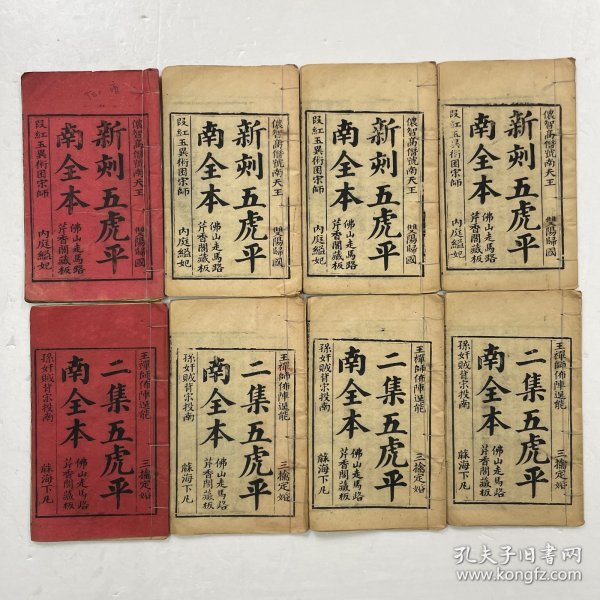 儂智高僭號南天王 雙陽歸國
新刻五虎平
南全本
佛山走馬路
芹香閣藏板
段紅玉異術困宗師 內庭縊妃
儂智高僭號南天王 雙陽歸國
新刻五虎平
南全本
佛山走馬路
芹香閣藏板
段紅玉異術困宗師 內庭縊妃
儂智高僭號南天王 雙陽歸國
新刻五虎平
南全本
佛山走馬路
芹香閣藏板
段紅玉異術困宗師 內庭縊妃
儂智高僭號南天王 雙陽歸國
新刻五虎平
南全本
佛山走馬路
芹香閣藏板
段紅玉異術困宗師 內庭縊妃
王禪師佈陣逞能 三擒定婚
二集五虎平
南全本
佛山走馬路
芹香閣藏板
孫奸賊背宗投南 蘇海下凡
王禪師佈陣逞能 三擒定婚
二集五虎平
南全本
佛山走馬路
芹香閣藏板
孫奸賊背宗投南 蘇海下凡
王禪師佈陣逞能 三擒定婚
二集五虎平
南全本
佛山走馬路
芹香閣藏板
孫奸賊背宗投南 蘇海下凡
王禪師佈陣逞能 三擒定婚
二集五虎平
南全本
佛山走馬路
芹香閣藏板
孫奸賊背宗投南 蘇海下凡
孔夫子旧书网
www.kongfz.com